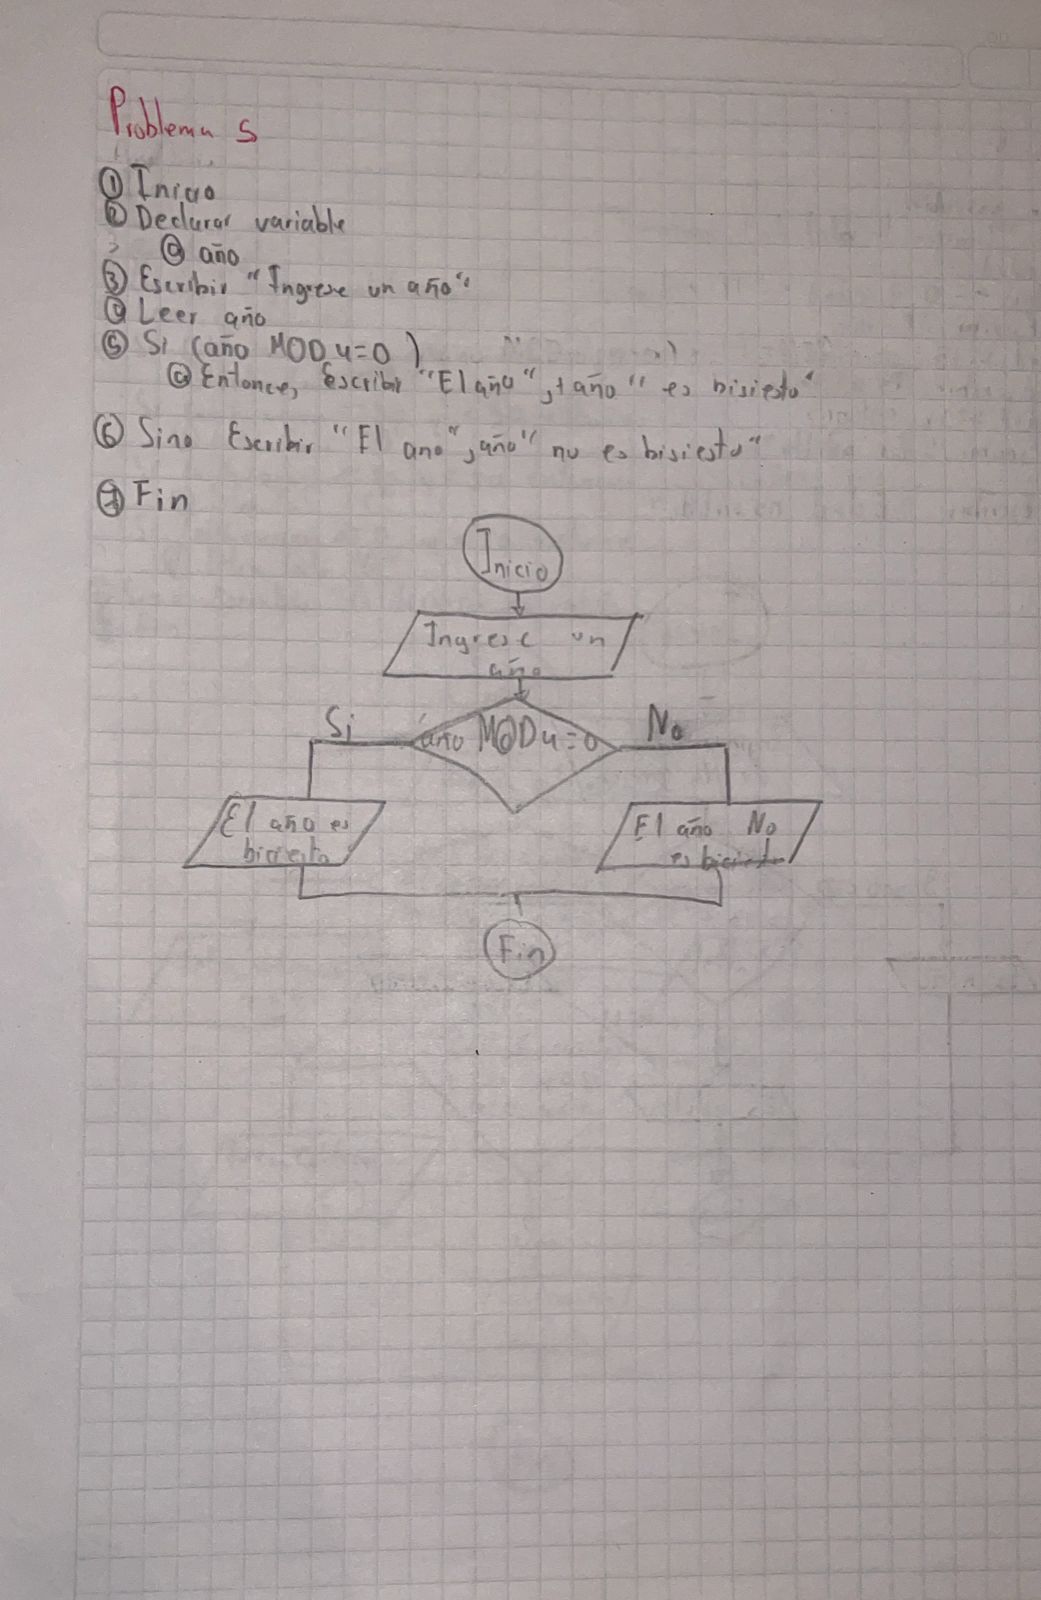 Problema 5
① Inicio
② Declarar variable
ⓐ año
③ Escribir "Ingrese un año"
④ Leer año
⑤ Si (año MOD 4=0)
ⓐ Entonces Escribir "El año", año" es bisiesto"
⑥ Sino Escribir "El ano", año" no es bisiesto"
⑦ Fin
Inicio
Ingrese un
año
Si
año MOD 4=0
No
El año es
biciesto
El año No
es
Fin